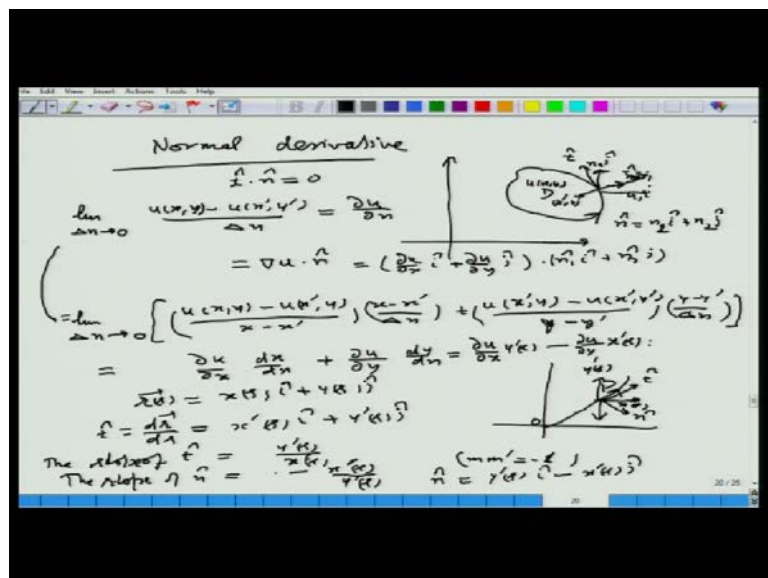 Edit View Insert Actions Tools Help
Normal derivative
t̂ · n̂ = 0
lim Δn→0 (u(x,y) − u(x′,y′))/Δn = ∂u/∂n
= ∇u · n̂ = (∂u/∂x î + ∂u/∂y ĵ) · (n₁ î + n₂ ĵ)
= lim Δn→0 [((u(x,y) − u(x′,y))/(x − x′)) ((x − x′)/Δn) + ((u(x′,y) − u(x′,y′))/(y − y′)) ((y − y′)/Δn)]
= ∂u/∂x dx/dn + ∂u/∂y dy/dn = ∂u/∂x y′(s) − ∂u/∂y x′(s)
r(s) = x(s) î + y(s) ĵ
t̂ = dr/ds = x′(s) î + y′(s) ĵ
The slope of t̂ = y′(s)/x′(s) (mm′ = −1)
The slope of n̂ = − x′(s)/y′(s) n̂ = y′(s) î − x′(s) ĵ
t̂
D
n̂ = n₁ î + n₂ ĵ
y′(s)
t̂
n̂
0
20 / 25
20